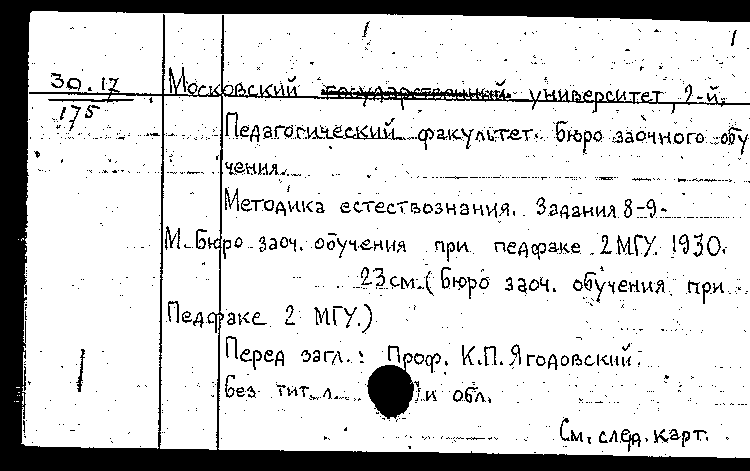 30.17
175
Московский государственный университет, 2-й.
Педагогический факультет. Бюро заочного обу
чения.
Методика естествознания. Задания 8-9.
М. Бюро заоч. обучения при педфаке 2 МГУ. 1930.
23 см. (Бюро заоч. обучения при
Педфаке 2 МГУ.)
Перед загл.: Проф. К.П. Ягодовский.
Без тит. л. и обл.
См. след. карт.